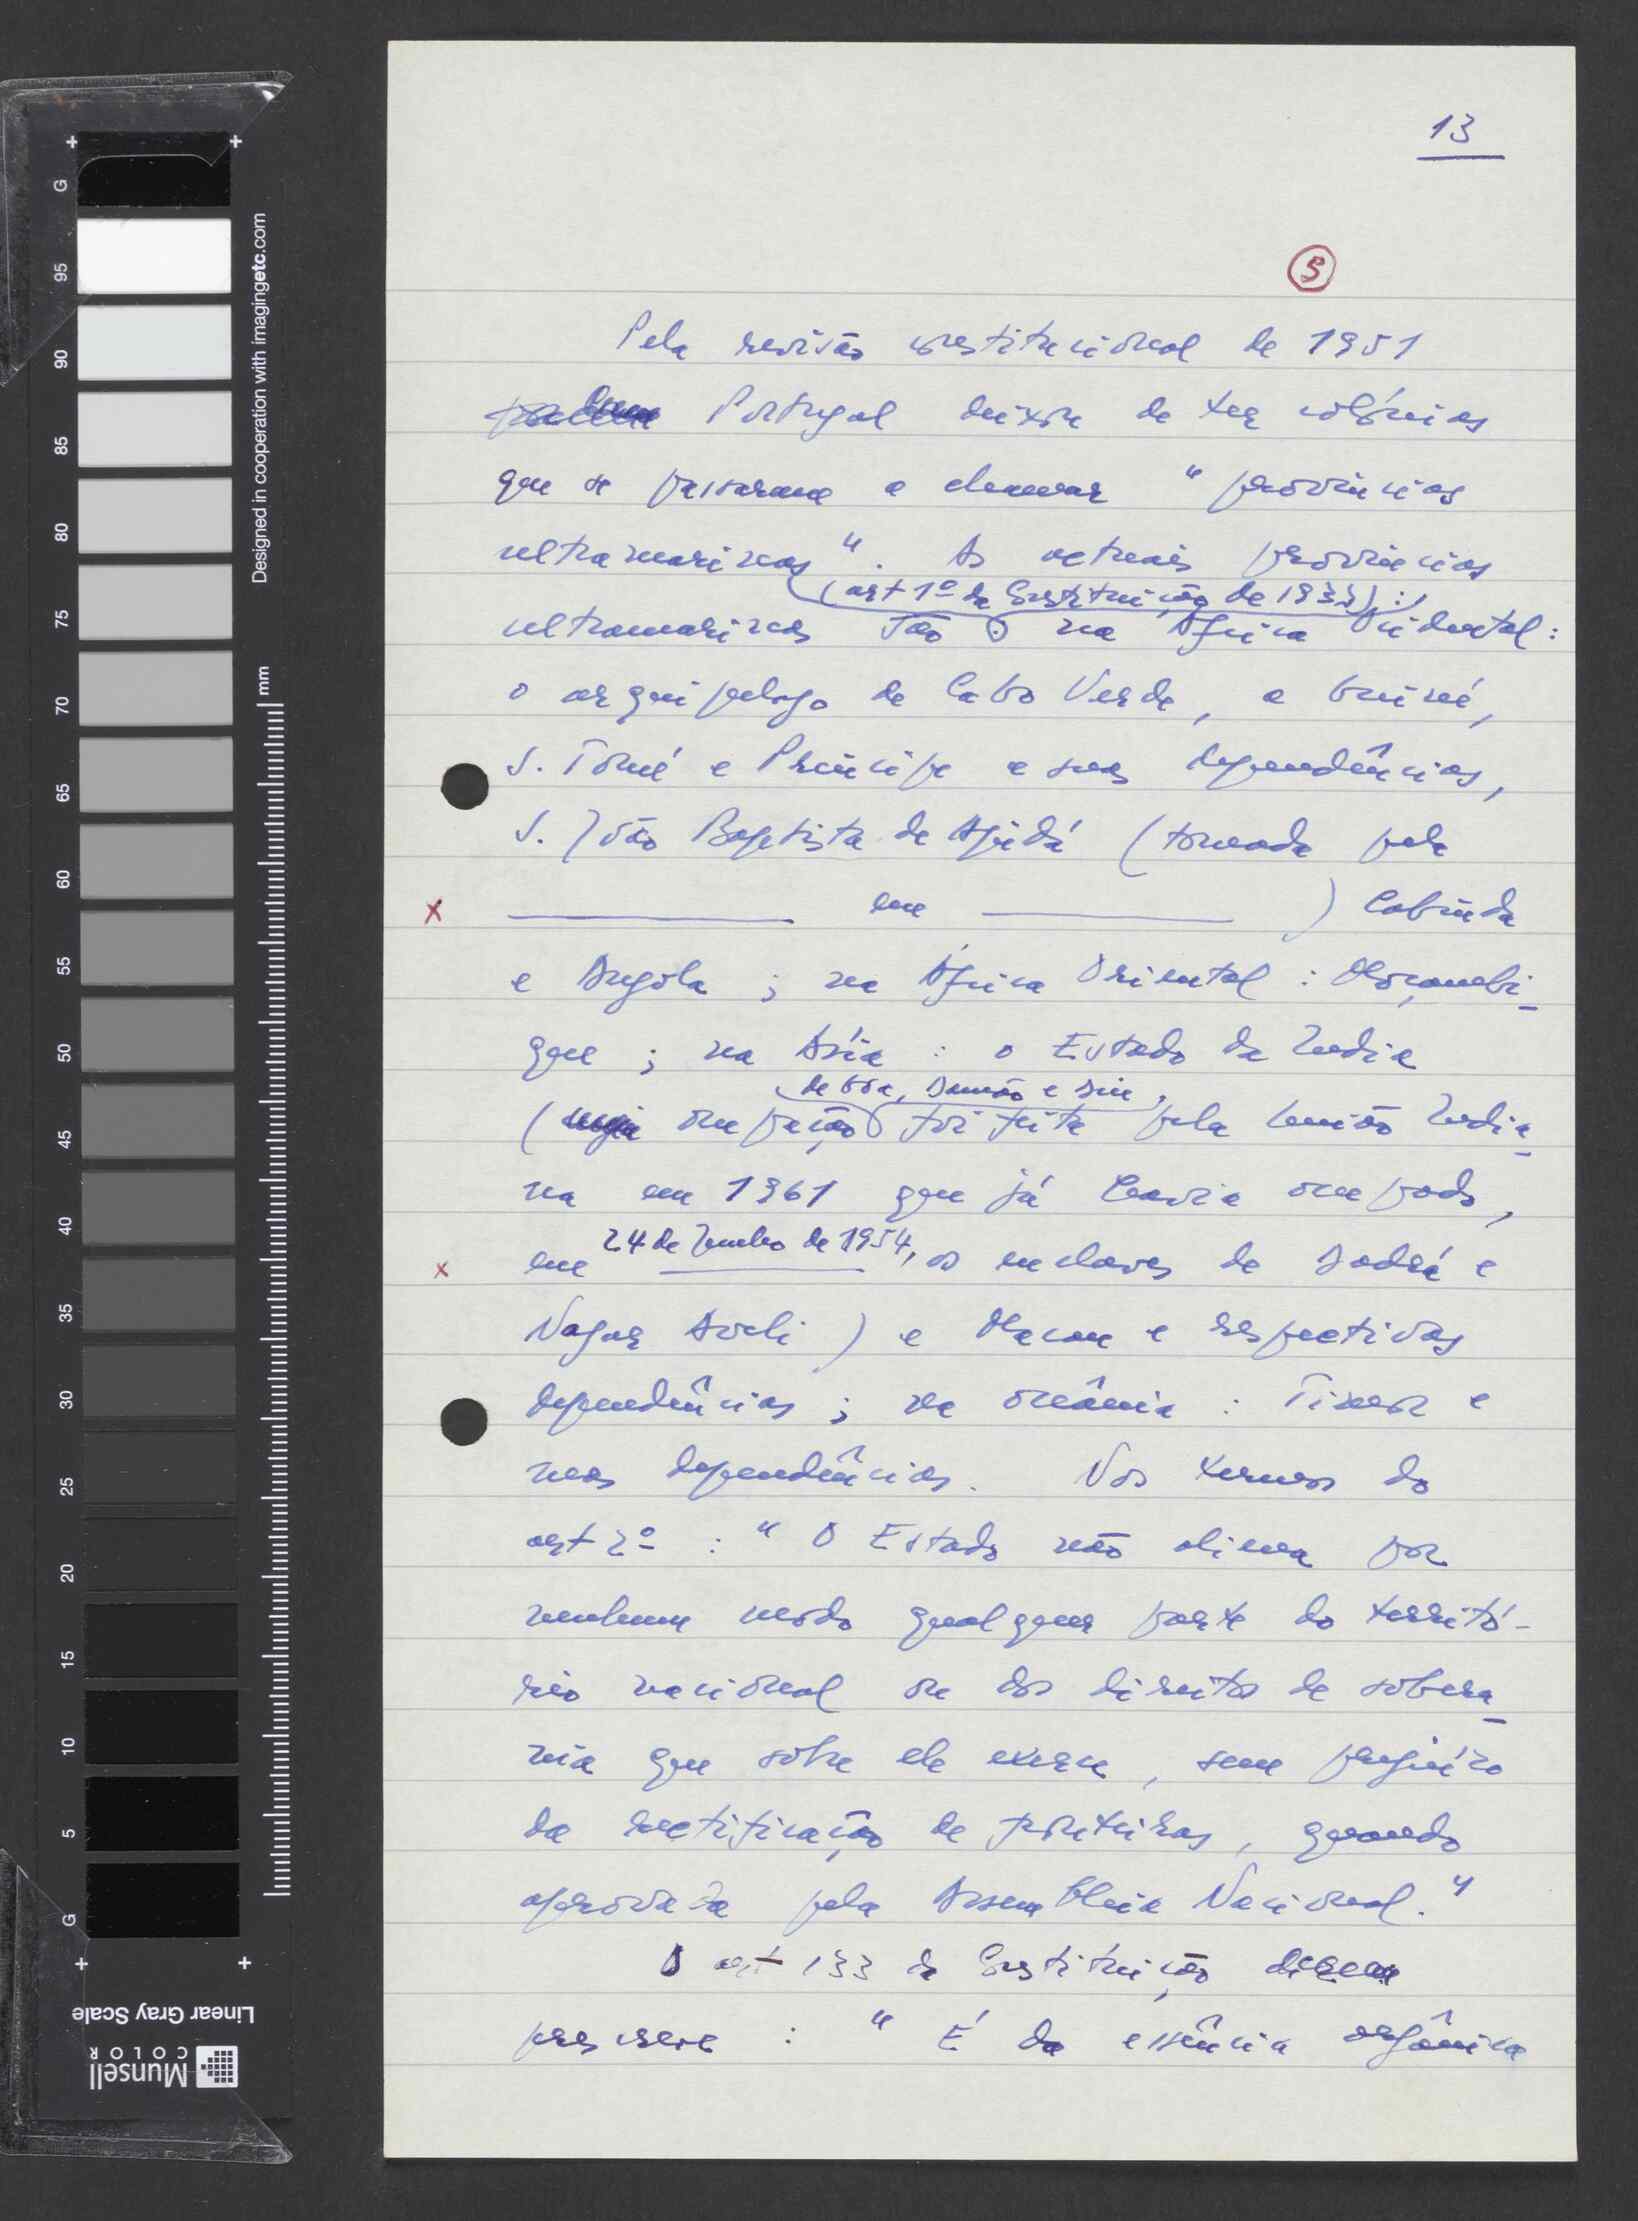 13
5
Pela revisão constitucional de 1951
Portugal deixou de ter colónias
que se passaram a chamar "províncias
ultramarinas". As actuais províncias
(art 1º da Constituição de 1933):
ultramarinas são na África Ocidental:
o arquipelago de Cabo Verde, a Guiné,
S. Tomé e Príncipe e suas dependências,
S. João Baptista de Ajudá (tomada pela
x em ) Cabinda
e Angola; na África Oriental: Moçambi-
que; na Ásia: o Estado da India
de Goa, Damão e Diu,
( ocupação foi feita pela União India-
na em 1961 que já havia ocupado,
24 de Junho de 1954,
x em os enclaves de Dadrá e
Nagar Aveli) e Macau e respectivas
dependências; na oceânia: Timor e
suas dependências. Nos termos do
art 2º: "O Estado não aliena por
nenhum modo qualquer parte do territó-
rio nacional ou dos direitos de sobera-
nia que sôbre ele exerce, sem prejuízo
da rectificação de fronteiras, quando
aprovada pela Assembleia Nacional."
O art 133 da Constituição
prescreve: "É da essência orgânica
G 95 90 85 80 75 70 65 60 55 50 45 40 35 30 25 20 15 10 5 G
mm
Designed in cooperation with imagingetc.com
Linear Gray Scale
Munsell
COLOR